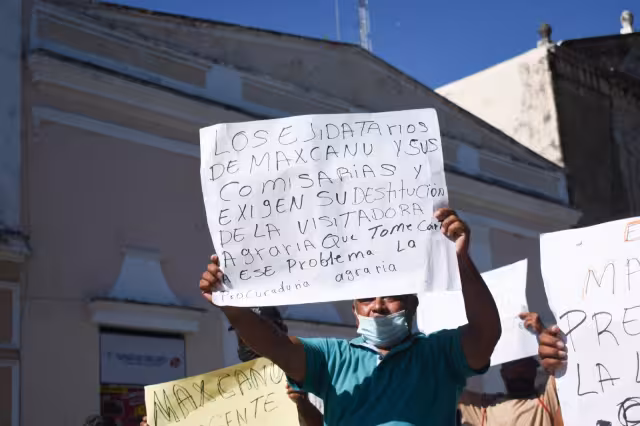 LOS EJIDATARIOS
DE MAXCANU Y SUS
COMISARIAS Y
EXIGEN SU DESTITUCIÓN
DE LA VISITADORA
AGRARIA QUE TOME CAR
A ESE PROBLEMA LA
Procuraduria agraria
MAXCANU
MA
PRE
LA L